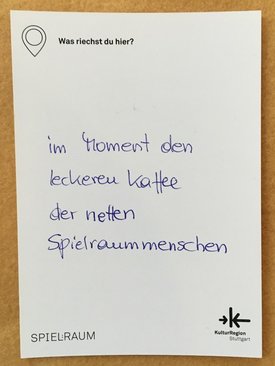 Was riechst du hier?
im Moment den
leckeren Kaffee
der netten
Spielraummenschen
SPIEL:RAUM
KulturRegion
Stuttgart